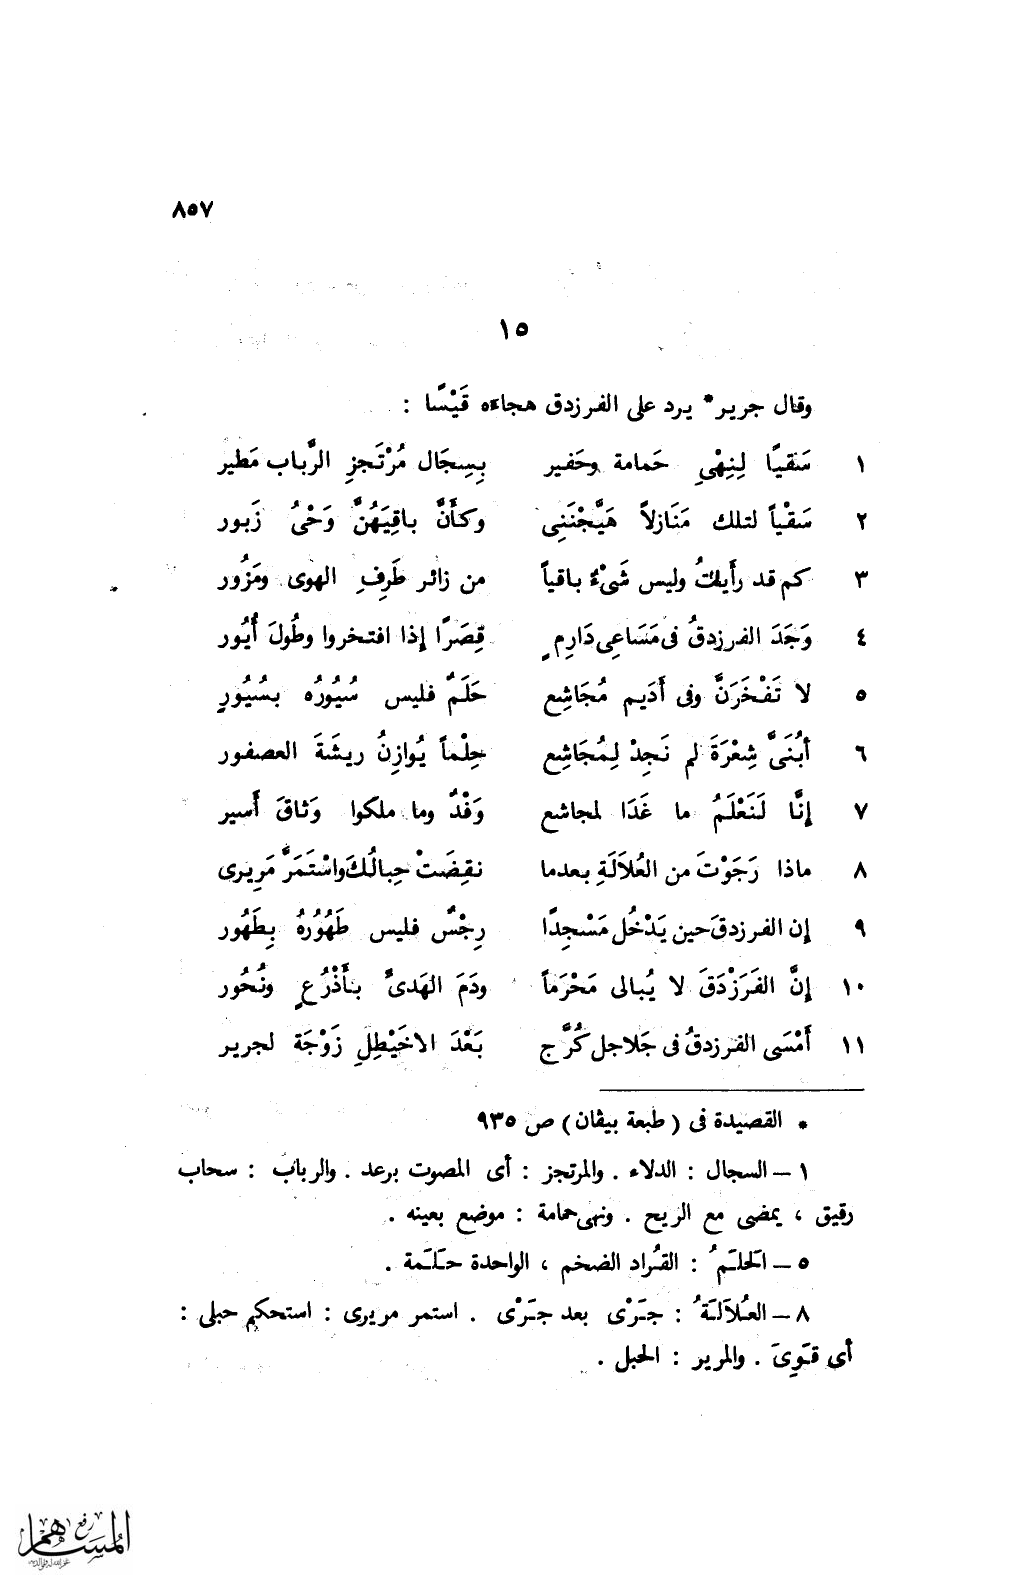 ٨٥٧
١٥
وقال جرير* يرد على الفرزدق هجاءه قَيْسًا :
١ سَقيًا لِنِهْيِ حَمامة وحَفير بِسِجَال مُرْتَجزِ الرَّباب مَطير
٢ سَقْياً لتلك مَنَازلاً هَيَّجْنَنِى وكأَنَّ باقِيَهُنَّ وَحْىُ زَبور
٣ كم قد رأَيتُ وليس شَىْءٌ باقياً من زائر طَرِفِ الهوى ومَزُور
٤ وَجَدَ الفرزدقُ فى مَسَاعِى دَارِمٍ قِصَرًا إذا افتخروا وطُولَ أُيُور
٥ لا تَفْخَرَنَّ وفى أَديم مُجَاشِع حَلَمٌ فليس سُيُورُه بسُيُورِ
٦ أبُنَىَّ شِعْرَةَ لم نَجِدْ لِمُجَاشِع حِلْماً يُوازِنُ ريشَةَ العصفور
٧ إنَّا لَنَعْلَمُ ما غَدَا لمجاشع وَفْدٌ وما ملكوا وَثاقَ أَسير
٨ ماذا رَجَوْتَ من العُلاَلَةِ بعدما نقِضَتْ حِبالُكَ واسْتَمَرَّ مَرِيرى
٩ إن الفرزدقَ حين يَدْخُل مَسْجدًا رِجْسٌ فليس طَهُورُهُ بِطَهُور
١٠ إنَّ الفَرَزْدَقَ لا يُبالى مَحْرَماً ودَمَ الهَدىِّ بأَذْرُعٍ ونُحُور
١١ أَمْسَى الفرزدقُ فى جَلاجل كُرَّج بَعْدَ الاخَيْطِلِ زَوْجَة لجرير
* القصيدة فى ( طبعة بيڤان ) ص ٩٣٥
١ – السجال : الدلاء . والمرتجز : أى المصوت برعد . والرباب : سحاب
رقيق ، يمضى مع الريح . ونهى حمامة : موضع بعينه .
٥ – الحَلَمُ : القُراد الضخم ، الواحدة حَلَمة .
٨ – العُلاَلَةُ : جَرْى بعد جَرْى . استمر مريرى : استحكم حبلى :
أى قَوِىَ . والمرير : الحبل .
رفع
المساهم